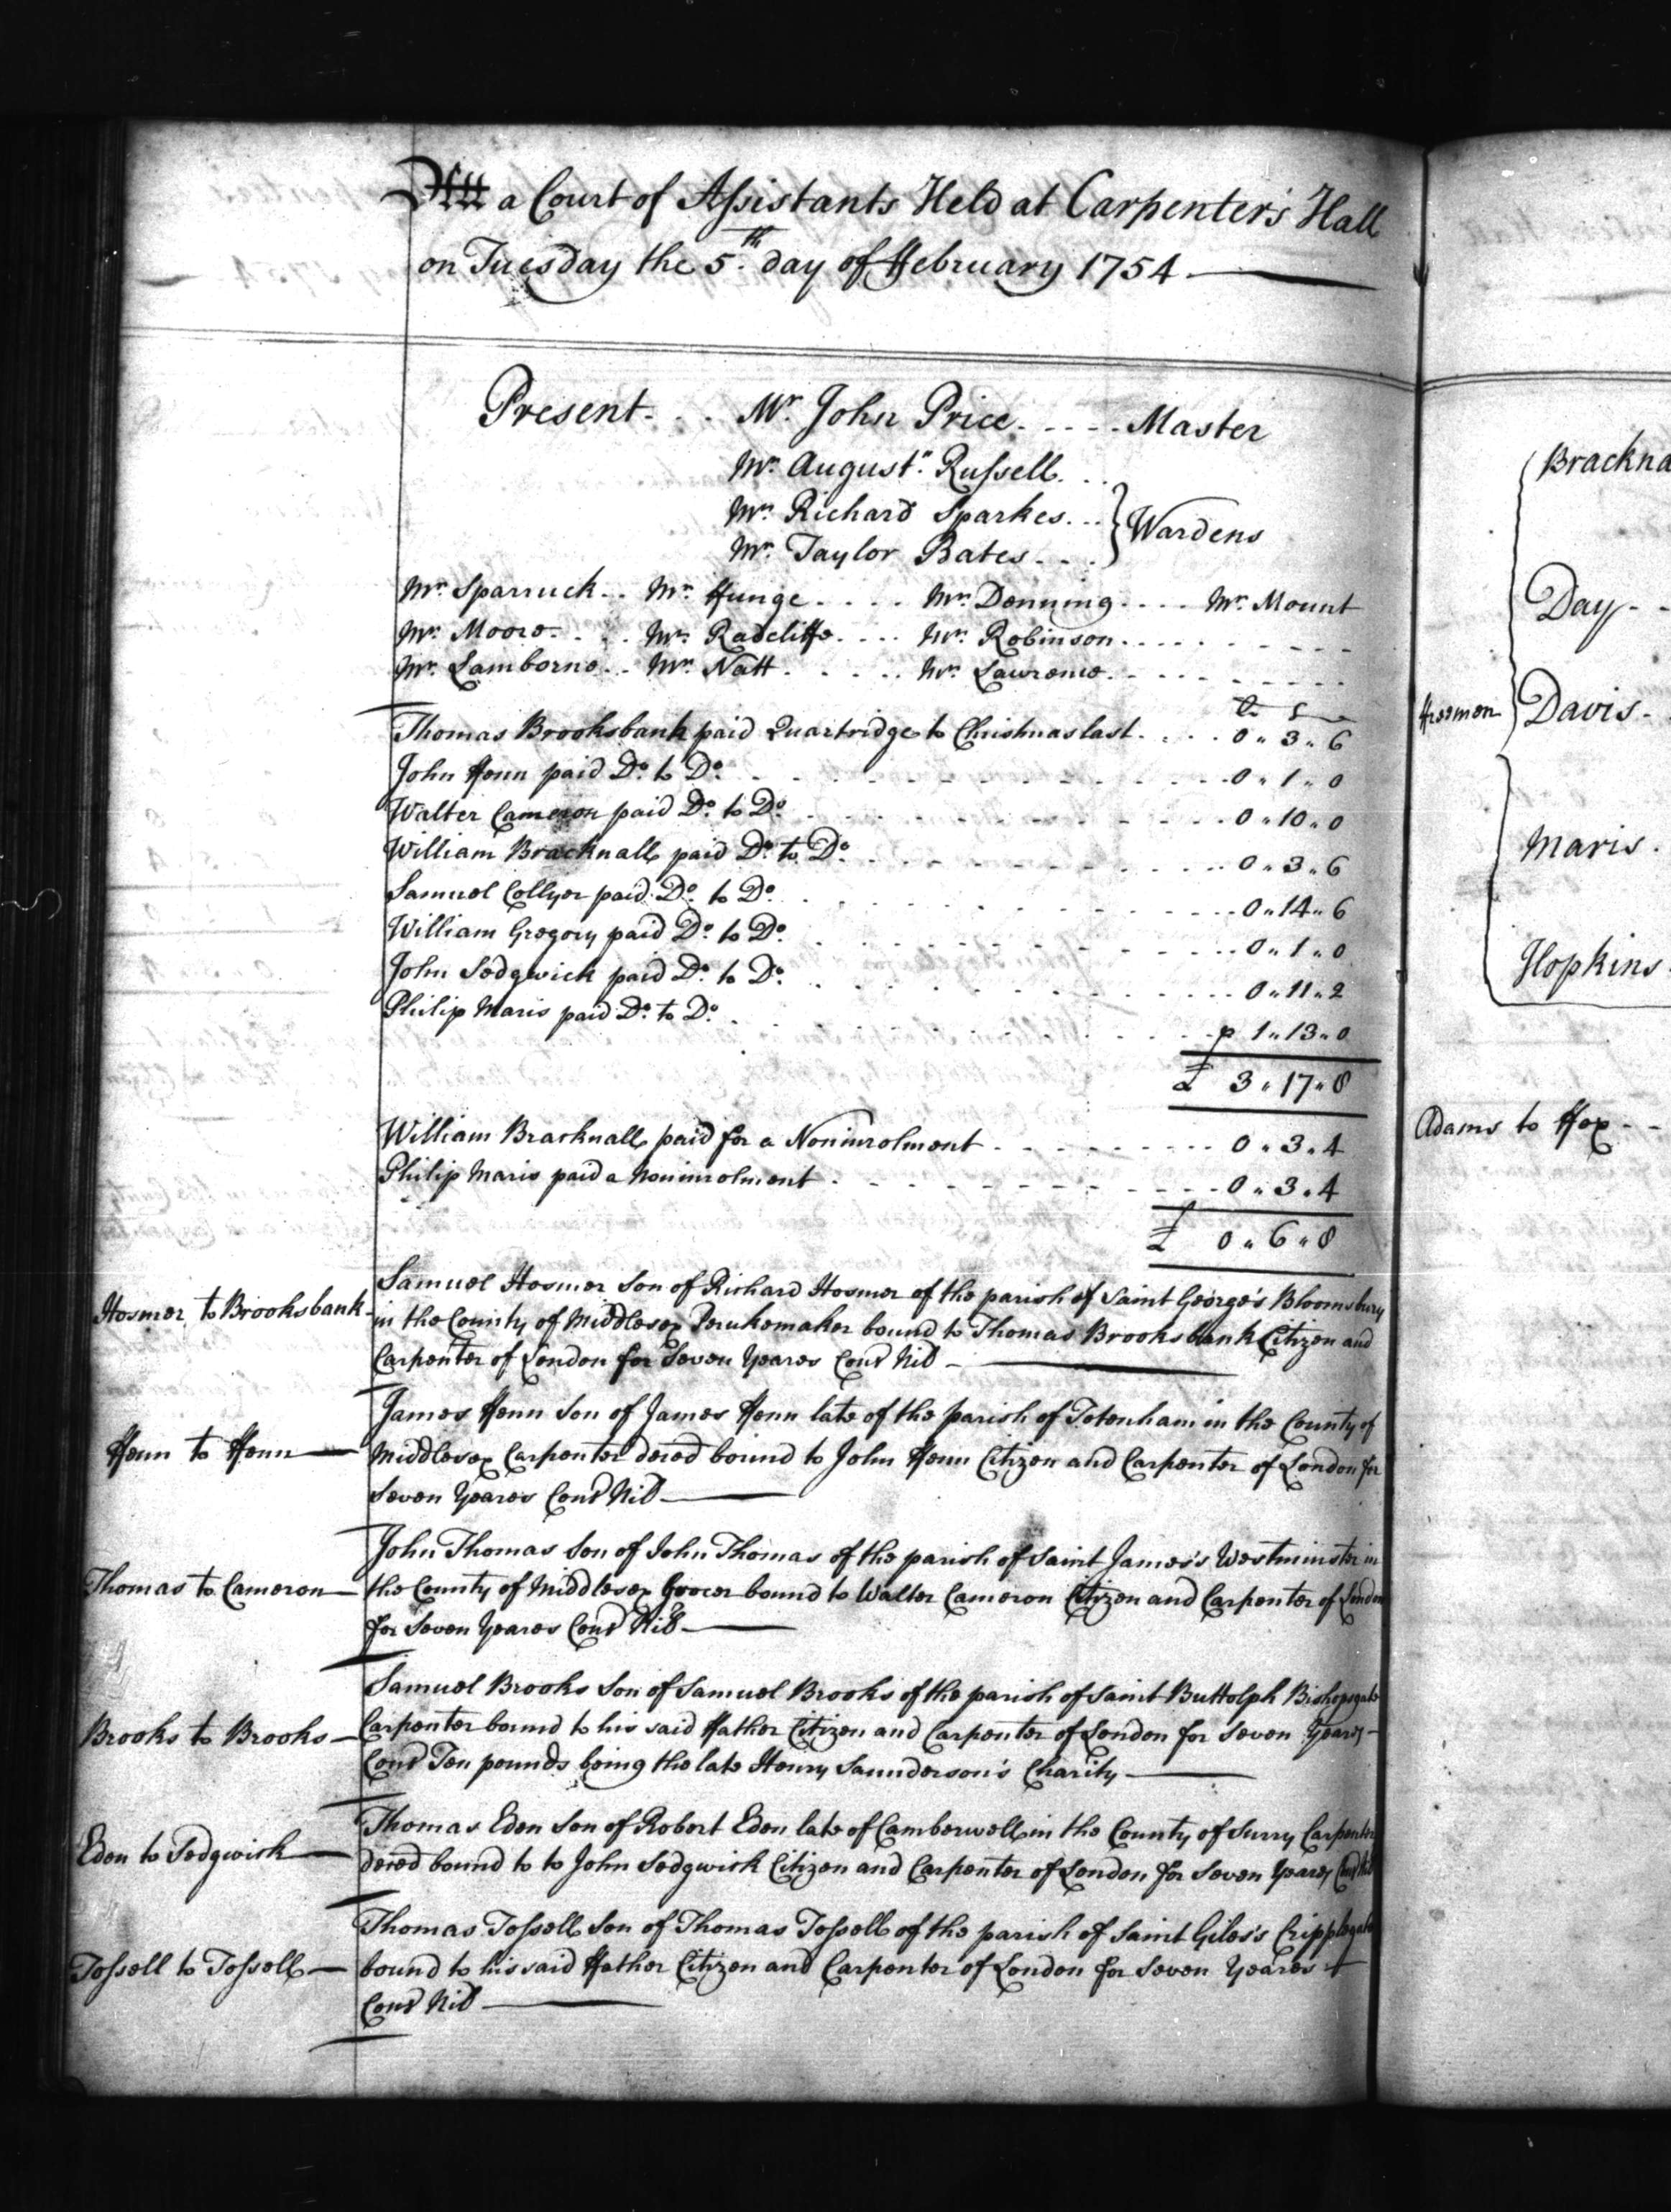 Att a Court of Assistants Held at Carpenter's Hall
on Tuesday the 5th. day of February 1754
Present - - - Mr. John Price - - - - - Master
Mr. August.n Russell - - -
Mr. Richard Sparkes - - - } Wardens
Mr. Taylor Bates - - -
Mr. Sparruck - - Mr. Funge - - - - Mr. Denning - - - - Mr. Mount
Mr. Moore - - - Mr. Radcliffe - - - - Mr. Robinson - - - - -
Mr. Lamborne - - Mr. Natt - - - - - Mr. Lawrence - - - - -
Thomas Brooksbank paid Quartridge to Christmas last - - - - 0 " 3 " 6
John Fenn paid Do. to Do. - - - 0 " 1 " 0
Walter Cameron paid Do. to Do. - - - 0 " 10 " 0
William Bracknall paid Do. to Do. - - - 0 " 3 " 6
Samuel Collyer paid Do. to Do. - - - 0 " 14 " 6
William Gregory paid Do. to Do. - - - 0 " 1 " 0
John Sedgwick paid Do. to Do. - - - 0 " 11 " 2
Philip Maris paid Do. to Do. - - - 1 " 13 " 0
£ 3 " 17 " 8
William Bracknall paid for a Noninrolment - - - 0 " 3 " 4
Philip Maris paid a Noninrolment - - - 0 " 3 " 4
£ 0 " 6 " 8
Hosmer to Brooksbank
Samuel Hosmer Son of Richard Hosmer of the parish of Saint George's Bloomsbury
in the County of Middlesex Perukemaker bound to Thomas Brooksbank Citizen and
Carpenter of London for Seven Yeares Cond Nil
Fenn to Fenn
James Fenn Son of James Fenn late of the parish of Totenham in the County of
Middlesex Carpenter deced bound to John Fenn Citizen and Carpenter of London for
Seven Yeares Cond Nil
Thomas to Cameron
John Thomas Son of John Thomas of the parish of Saint James's Westminster in
the County of Middlesex Grocer bound to Walter Cameron Citizen and Carpenter of London
for Seven Yeares Cond Nil
Brooks to Brooks
Samuel Brooks Son of Samuel Brooks of the parish of Saint Buttolph Bishopsgate
Carpenter bound to his said Father Citizen and Carpenter of London for Seven Yeares
Cond Ten pounds being the late Henry Saunderson's Charity
Eden to Sedgwick
Thomas Eden Son of Robert Eden late of Camberwell in the County of Surry Carpenter
deced bound to to John Sedgwick Citizen and Carpenter of London for Seven Yeares Cond Nil
Tossell to Tossell
Thomas Tossell Son of Thomas Tossell of the parish of Saint Giles's Cripplegate
bound to his said Father Citizen and Carpenter of London for Seven Yeares
Cond Nil
Day - -
Freemen
Davis -
Maris -
Hopkins
Adams to Fox - -